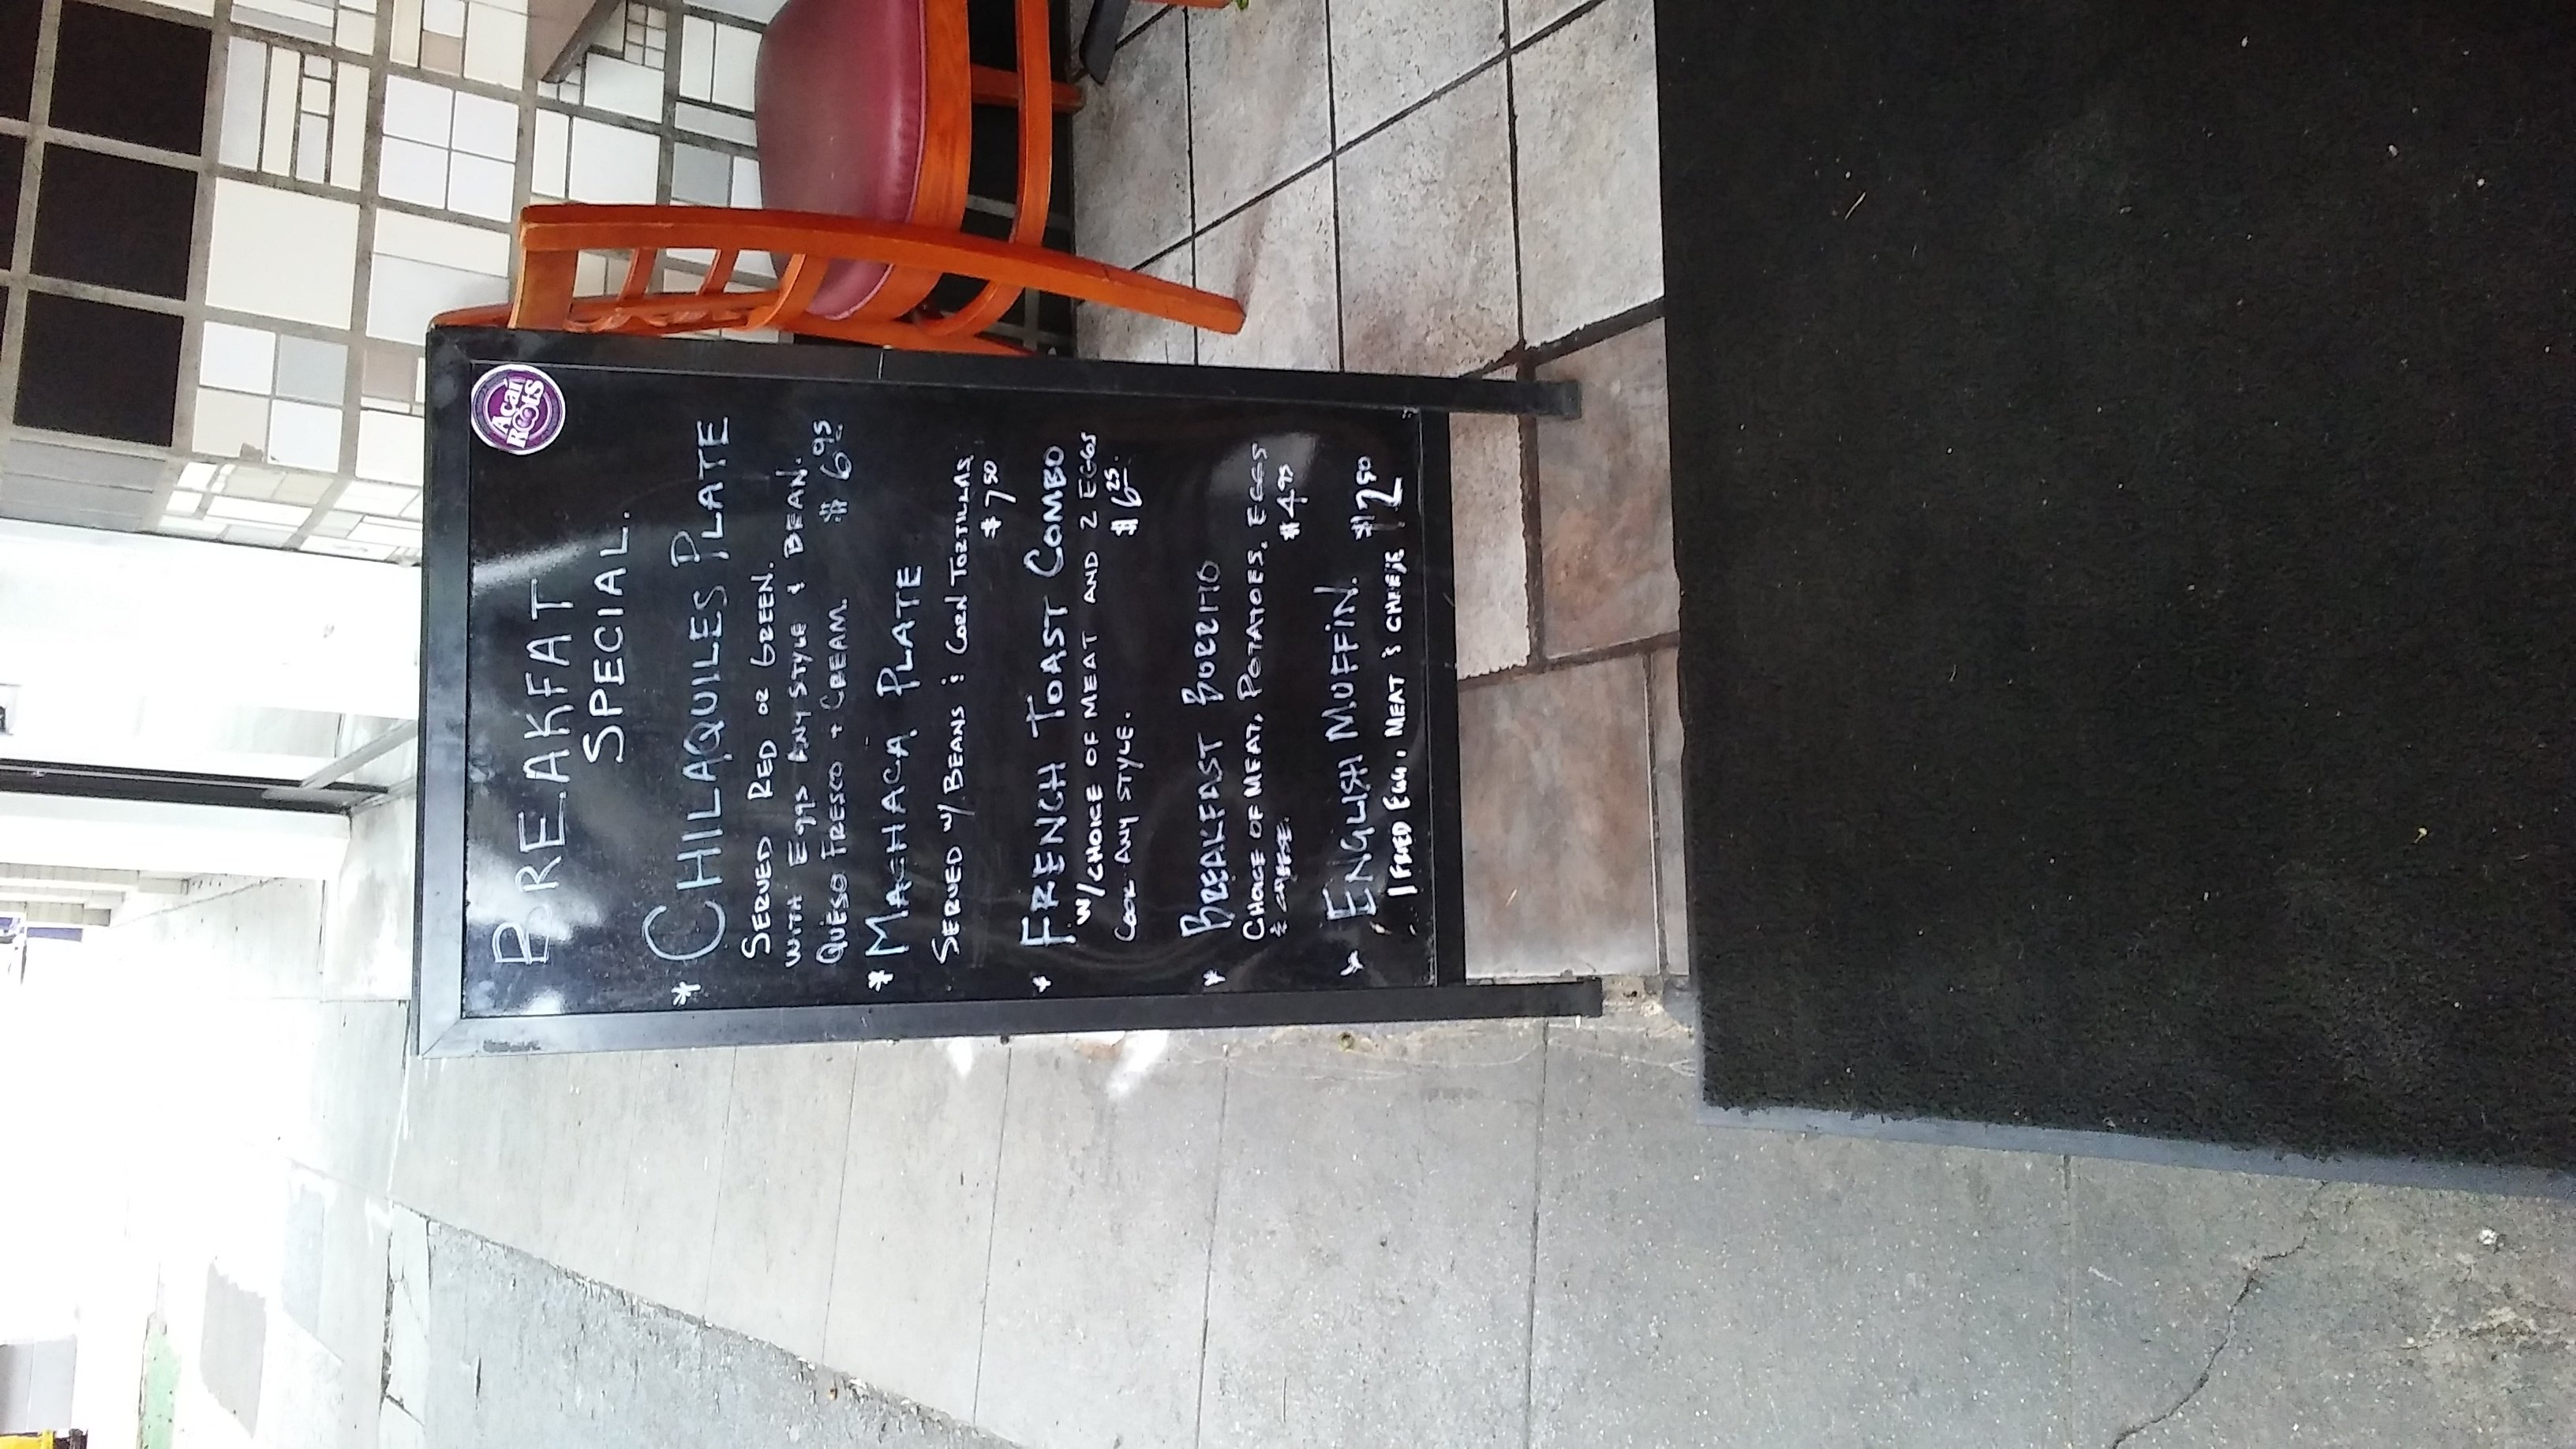 Acaí
Roots
BREAKFAT
SPECIAL.
* CHILAQUILES PLATE
SERVED RED OR GREEN.
WITH EggS ANY STYLE & BEAN.
QUESO FRESCO + CREAM. $ 6.95
* MACHACA PLATE
SERVED W/ BEANS & CORN TORTILLAS
$ 7 50
* FRENCH TOAST COMBO
W/CHOICE OF MEAT AND 2 EGGS
COOK ANY STYLE. $ 6 25.
* BREAKFAST BURRITO
CHOICE OF MEAT, POTATOES, EGGS
& CHEESE. $4.95
* ENGLISH MUFFIN. $2 50
1 FRIED EGG, MEAT & CHEESE